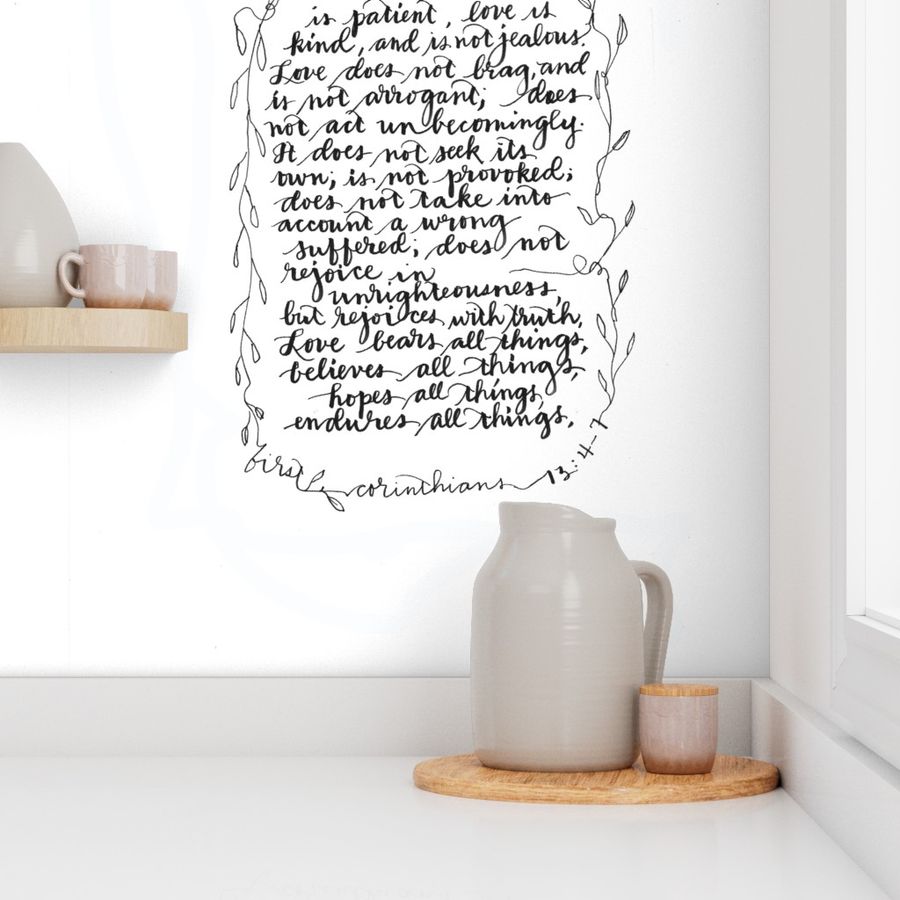 is patient, love is
kind, and is not jealous.
Love does not brag, and
is not arrogant; does
not act unbecomingly.
It does not seek its
own; is not provoked;
does not take into
account a wrong
suffered; does not
rejoice in
unrighteousness,
but rejoices with truth,
Love bears all things,
believes all things,
hopes all things,
endures all things.
first corinthians 13:4-7